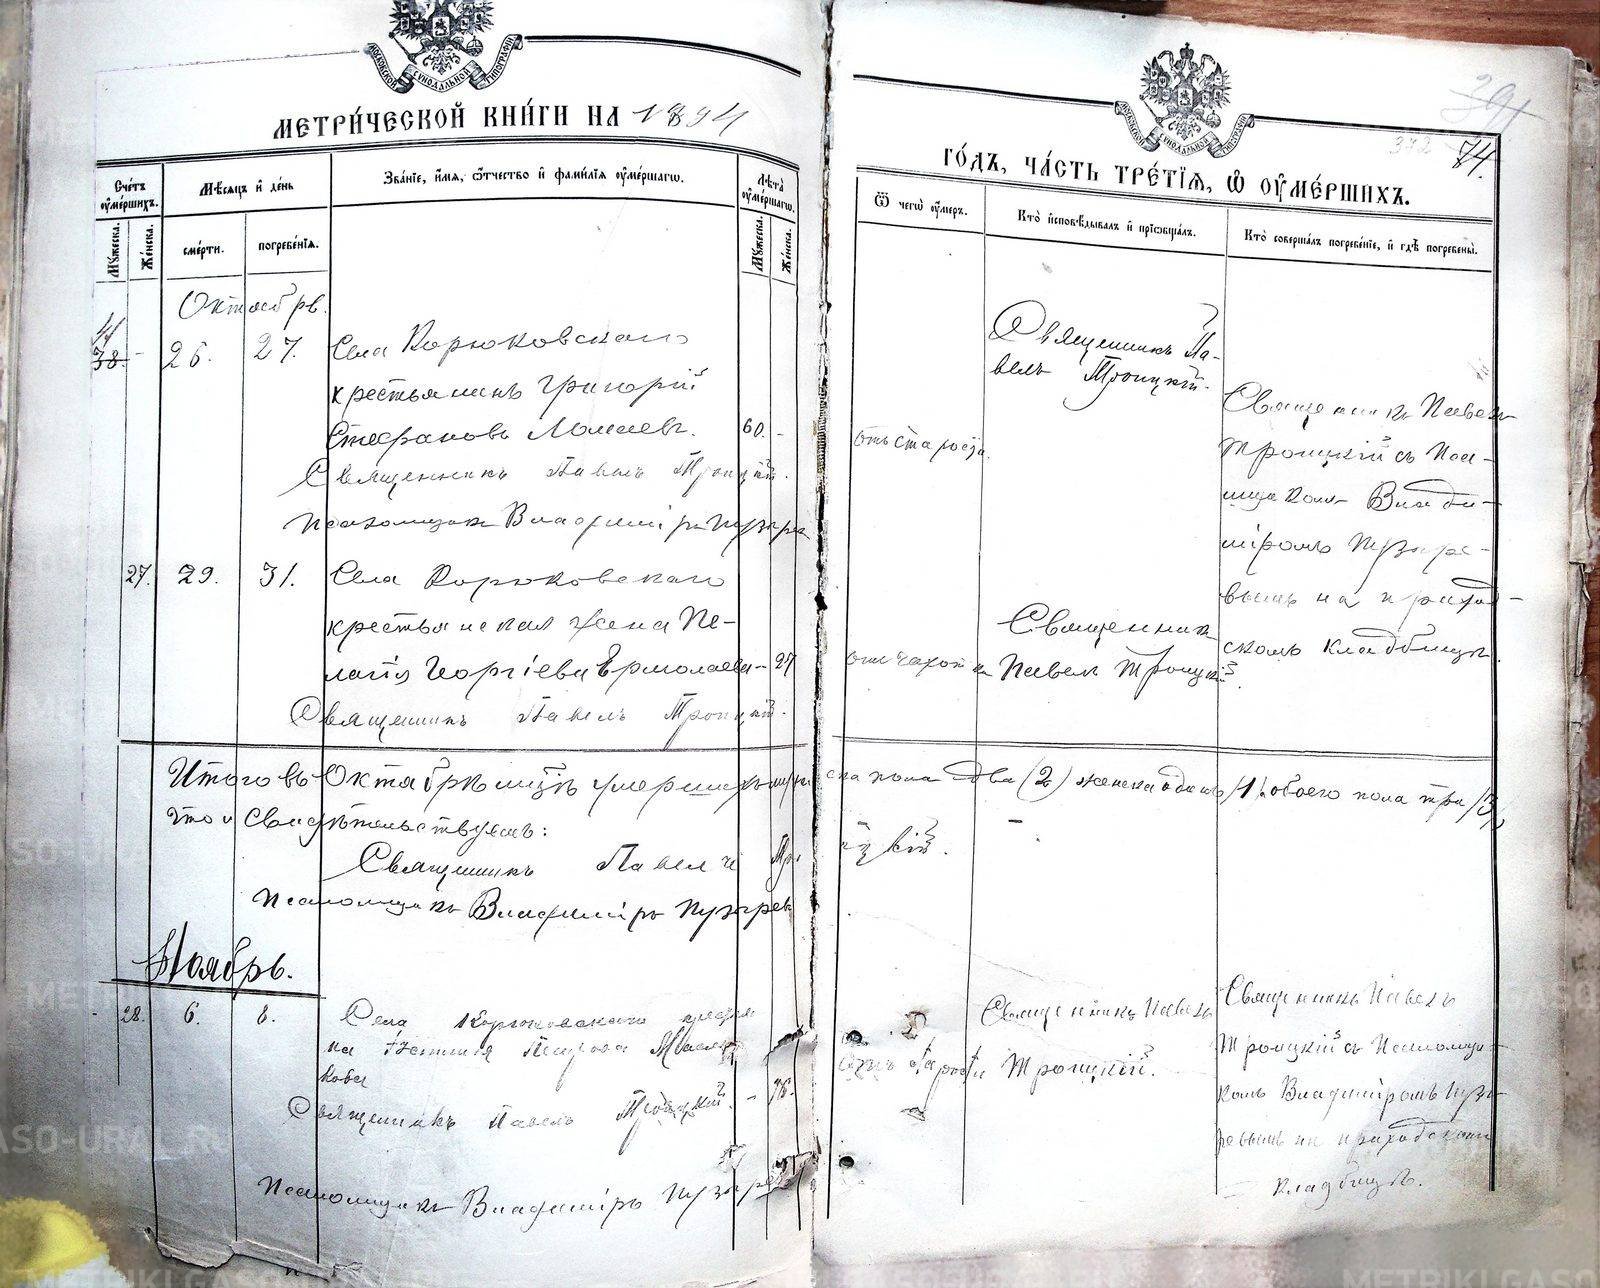 МОСКОВСКОЙ СѴНОДАЛЬНОЙ ТИПОГРАФІИ
МЕТРИ́ЧЕСКОЙ КНИ́ГИ НА 1894
Счетъ ᲂумершихъ.
Мужеска.
Женска.
Мѣсяцъ и день
смерти.
погребенія.
Званіе, имя, ѿчество и фамилія ᲂумершагѡ.
Лѣта ᲂумершагѡ.
Мужеска.
Женска.
Октябрь.
41
38. - 26. 27. Села Корюковскаго
крестьянинъ Григорій
Стефановъ Ломаевъ. 60. -
Священникъ Павелъ Троицкій.
Псаломщикъ Владиміръ Пузырев
27. 29. 31. Села Корюковскаго
крестьянская жена Пе-
лагія Георгіева Ермолаева - 27
Священникъ Павелъ Троицкій.
Итого въ Октябрѣ мцѣ умершихъ муже
что и свидѣтельствуемъ:
Священникъ Павелъ Тро
Псаломщикъ Владиміръ Пузырев
Ноябрь.
28. 6. 8. Села Корюковскаго
на Петрова
кова - 78.
Священникъ Павелъ Троицкій.
Псаломщикъ Владиміръ Пузырев
МОСКОВСКОЙ СѴНОДАЛЬНОЙ ТИПОГРАФІИ
372
74.
ГО́ДЪ, ЧА́СТЬ ТРЕ́ТІЯ, Ѡ ОУМЕ́РШИХЪ.
Ѿ чегѡ ᲂумеръ.
Кто исповѣдывалъ и пріобщалъ.
Кто совершалъ погребеніе, и гдѣ погребены.
Священникъ Па-
велъ Троицкій.
отъ старости.
Священникъ Павелъ
Троицкій съ Псал-
мщикомъ Влади-
міромъ Пузыре-
вымъ на приход-
скомъ кладбищѣ.
отъ чахотки
Священникъ
Павелъ Троицкій.
ска пола два (2) женска одинъ (1) обоего пола три (3)
ицкій.
отъ старости
Священникъ Павелъ
Троицкій.
Священникъ Павелъ
Троицкій съ Псаломщи-
комъ Владиміромъ Пузы-
ревымъ на приходскомъ
кладбищѣ.